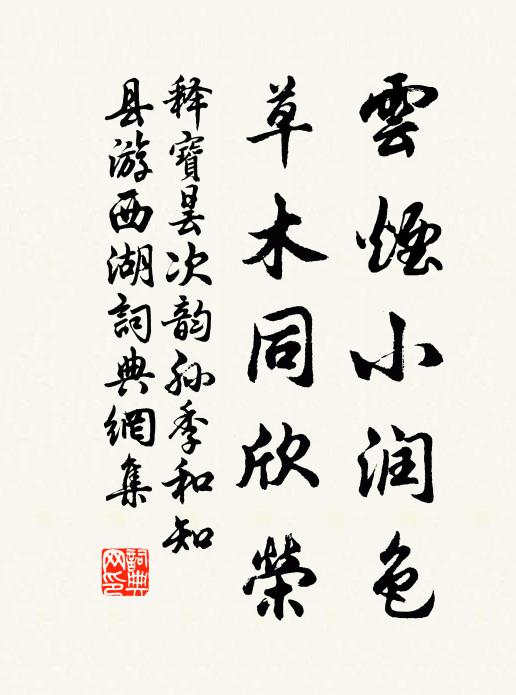 雲煙小润色
草木同欣榮
释寶曇次韵孙季和知
县游西湖詞典網集
詞典網印